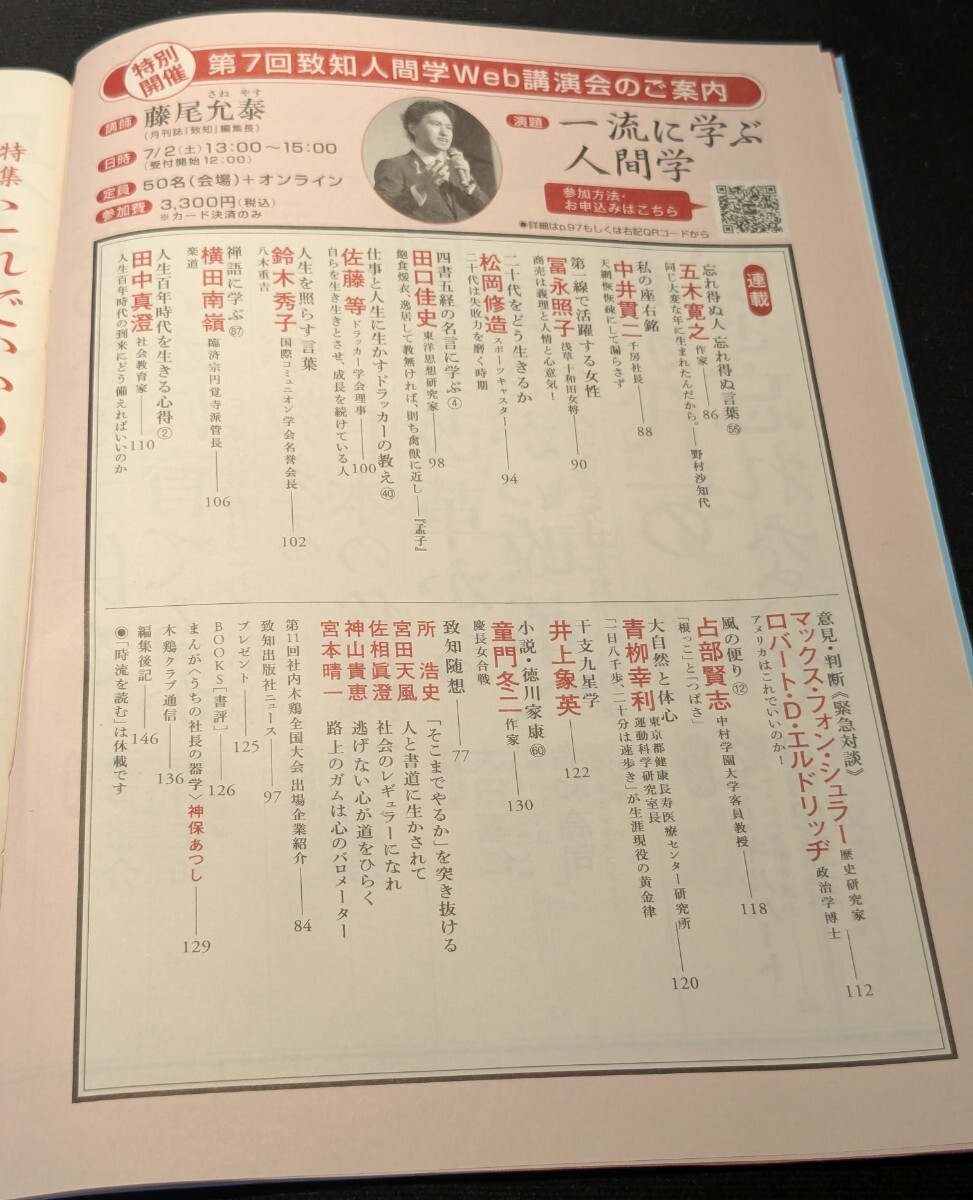 特集
これでいいのか
特別
開催
第7回致知人間学Web講演会のご案内
講師
さね やす
藤尾允泰
(月刊誌『致知』編集長)
日時
7/2(土)13:00～15:00
(受付開始12:00)
定員
50名(会場)+オンライン
参加費
3,300円(税込)
※カード決済のみ
演題
一流に学ぶ
人間学
参加方法・
お申込みはこちら
●詳細はp.97もしくは右記QRコードから
連載
忘れ得ぬ人 忘れ得ぬ言葉㊺
五木寛之 作家 86
同じ大変な年に生まれたんだから。──野村沙知代
私の座右銘
中井貫二 千房社長 88
天網恢恢疎にして漏らさず
第一線で活躍する女性
冨永照子 浅草十和田女将 90
商売は義理と人情と心意気！
二十代をどう生きるか
松岡修造 スポーツキャスター 94
二十代は失敗力を磨く時期
四書五経の名言に学ぶ④
田口佳史 東洋思想研究家 98
飽食煖衣、逸居して教無ければ、則ち禽獣に近し──『孟子』
仕事と人生に生かすドラッカーの教え㊵
佐藤 等 ドラッカー学会理事 100
自らを生き生きとさせ、成長を続けている人
人生を照らす言葉
鈴木秀子 国際コミュニオン学会名誉会長 102
八木重吉
禅語に学ぶ(87)
横田南嶺 臨済宗円覚寺派管長 106
楽道
人生百年時代を生きる心得②
田中真澄 社会教育家 110
人生百年時代の到来にどう備えればいいのか
意見・判断《緊急対談》
マックス・フォン・シュラー 歴史研究家
ロバート・D・エルドリッヂ 政治学博士 112
アメリカはこれでいいのか！
風の便り⑫
占部賢志 中村学園大学客員教授 118
「根っこ」と「つばさ」
大自然と体心
青栁幸利 東京都健康長寿医療センター研究所
運動科学研究室長 120
一日八千歩、二十分は速歩き」が生涯現役の黄金律
干支九星学
井上象英 122
小説・徳川家康(60)
童門冬二 作家 130
慶長女合戦
致知随想 77
所 浩史 「そこまでやるか」を突き抜ける
宮田天風 人と書道に生かされて
佐相眞澄 社会のレギュラーになれ
神山貴恵 逃げない心が道をひらく
宮本晴一 路上のガムは心のバロメーター
第11回社内木鶏全国大会 出場企業紹介 84
致知出版社ニュース 97
プレゼント 125
BOOKS[書評] 126
まんが〈うちの社長の器学〉神保あつし 129
木鶏クラブ通信 136
編集後記 146
●「時流を読む」は休載です